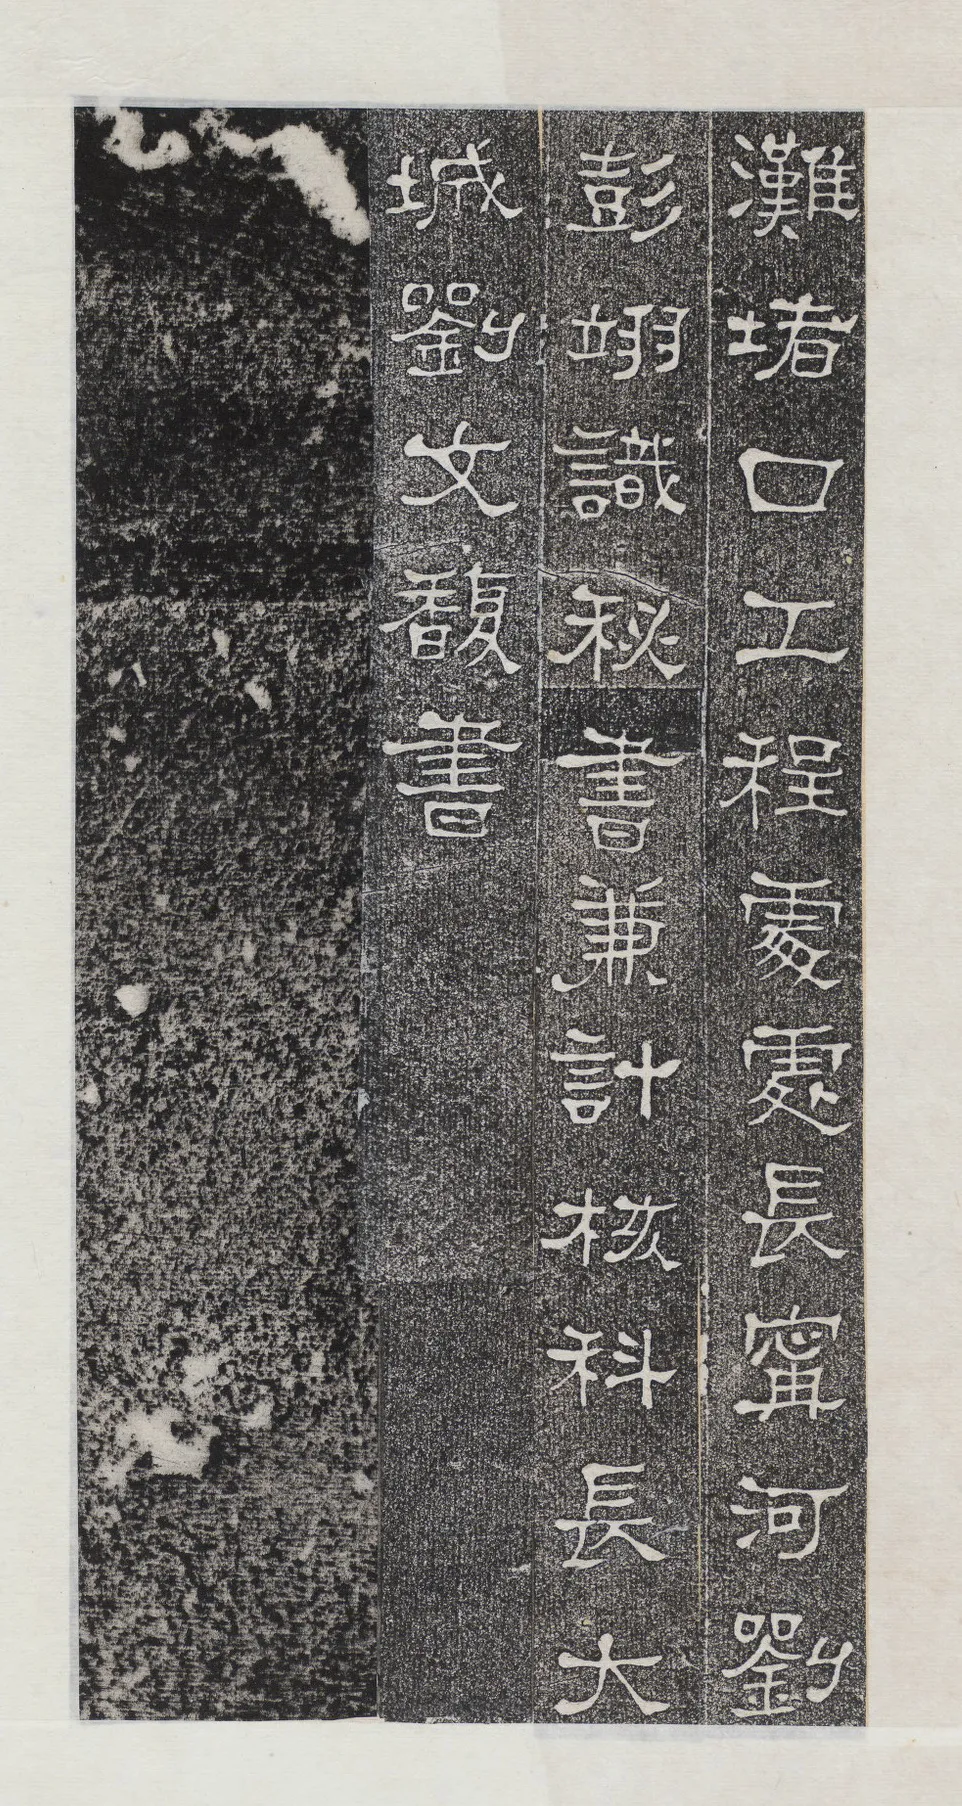 灘堵口工程處處長寗河劉
彭翊識秘書兼計核科長大
城劉文馥書